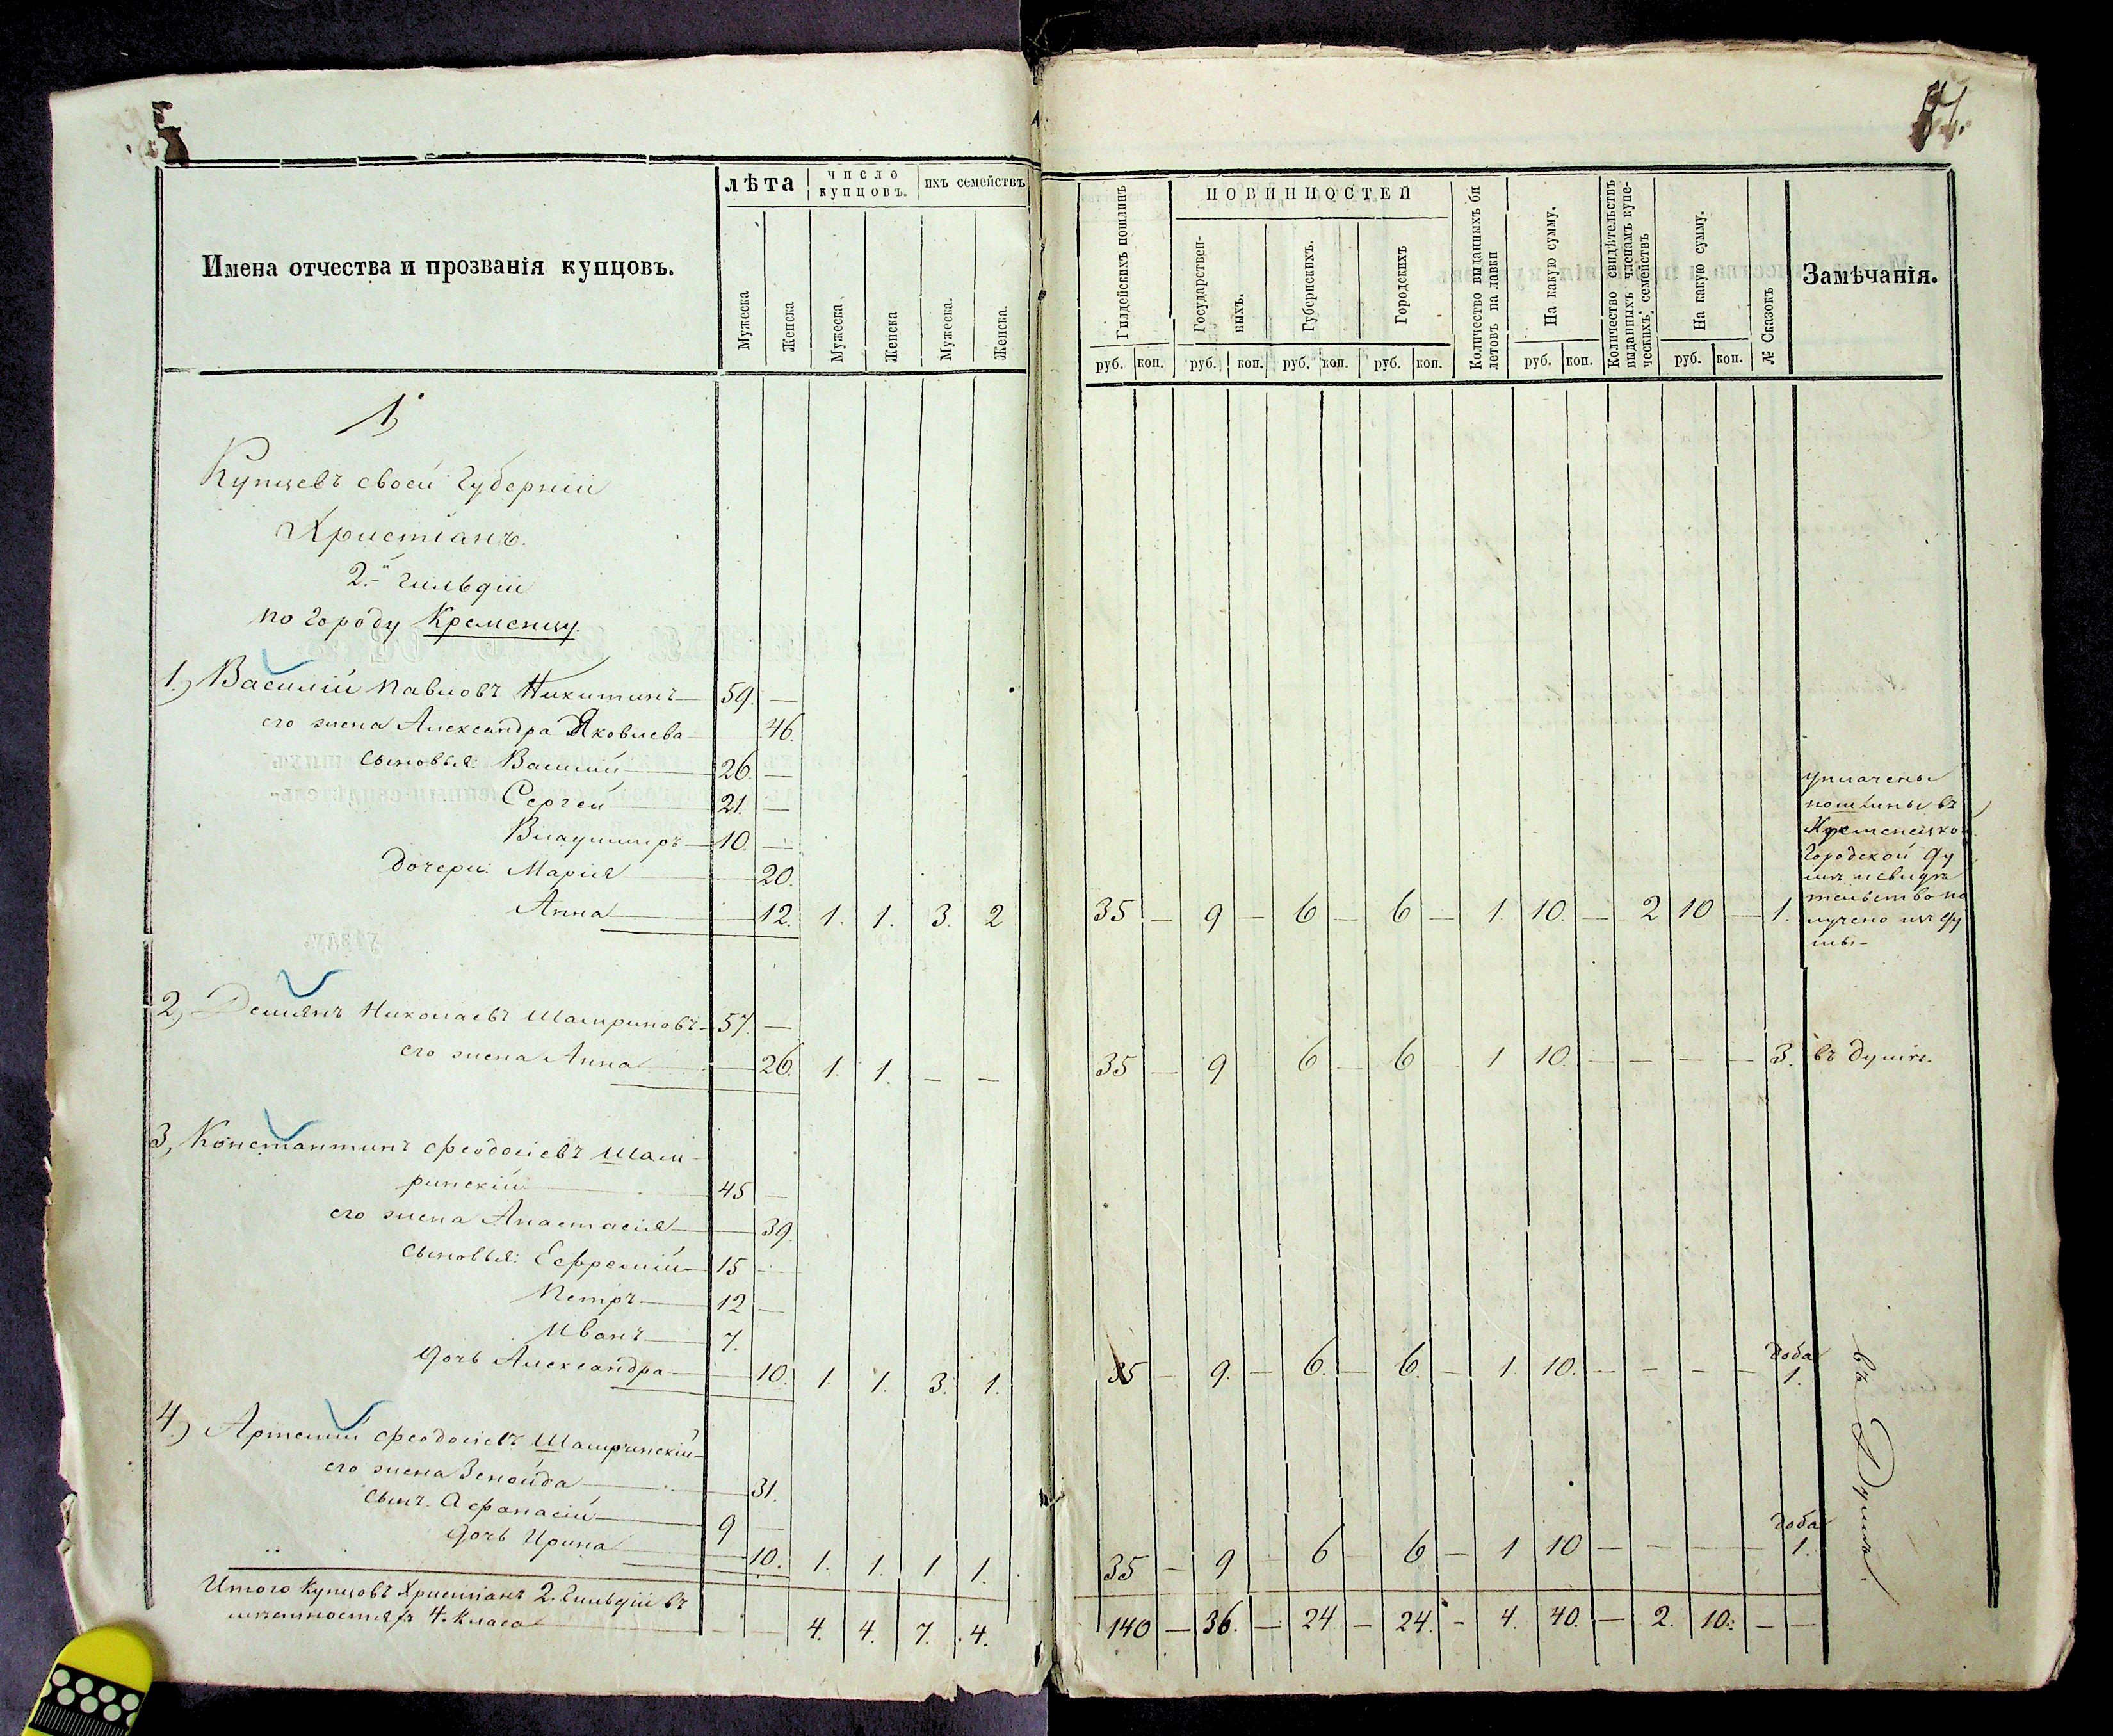 Имена отчества и прозванія купцовъ.
лѣта
число купцовъ.
ихъ семействъ
Мужеска
Женска
Мужеска
Женска
Мужеска.
Женска.
1,
Купцевъ своей Губерніи
Христіанъ.
2.й гильдіи
по городу Кременцу.
1.) Василій Павловъ Никитинъ 59. —
его жена Александра Яковлева 46.
сыновья: Василій 26. —
Сергей 21. —
Владимиръ 10. —
дочери: Марія 20.
Анна 12. 1. 1. 3. 2
2,) Демьянъ Николаевъ 57. —
его жена Анна 26. 1. 1. — —
3, Константинъ Феодосіевъ Шам-
ринскій 45 —
его жена Анастасія 39.
сыновья: Ефремій 15 —
Петръ 12 —
Иванъ 7.
дочь Александра 10. 1. 1. 3. 1.
4.) Артемій Феодосіевъ Шамринскій
его жена Зеноида 31.
сынъ Афанасій 9 —
дочь Ирина 10. 1. 1. 1 1.
Итого Купцовъ Христіанъ 2. Гильдіи въ
мѣстностяхъ 4. Класа — — 4. 4. 7. 4.
Гилдейскихъ пошлинъ
ПОВИННОСТЕЙ
Государствен-
ныхъ.
Губернскихъ.
Городскихъ
Количество выданныхъ би
летовъ на лавки
На какую сумму.
Количество свидѣтельствъ
выданныхъ членамъ купе-
ческихъ семействъ
На какую сумму.
№ Сказокъ
Замѣчанія.
руб. коп. руб. коп. руб. коп. руб. коп. руб. коп. руб. коп.
уплачены
пошлины въ
Кременецкой
Городской Ду
мѣ и свидѣ
тельство по
лучено изъ Ду
мы —
35 — 9 — 6 — 6 — 1. 10. — 2 10 — 1.
35 — 9 — 6 — 6 — 1 10. — — — — 3. въ Думѣ.
35 — 9. — 6. — 6. — 1. 10. — — — — доба 1.
въ Думѣ.
35 — 9 — 6 — 6 — 1 10 — — — — доба 1.
140 — 36. — 24 — 24. — 4. 40. — 2. 10. — —